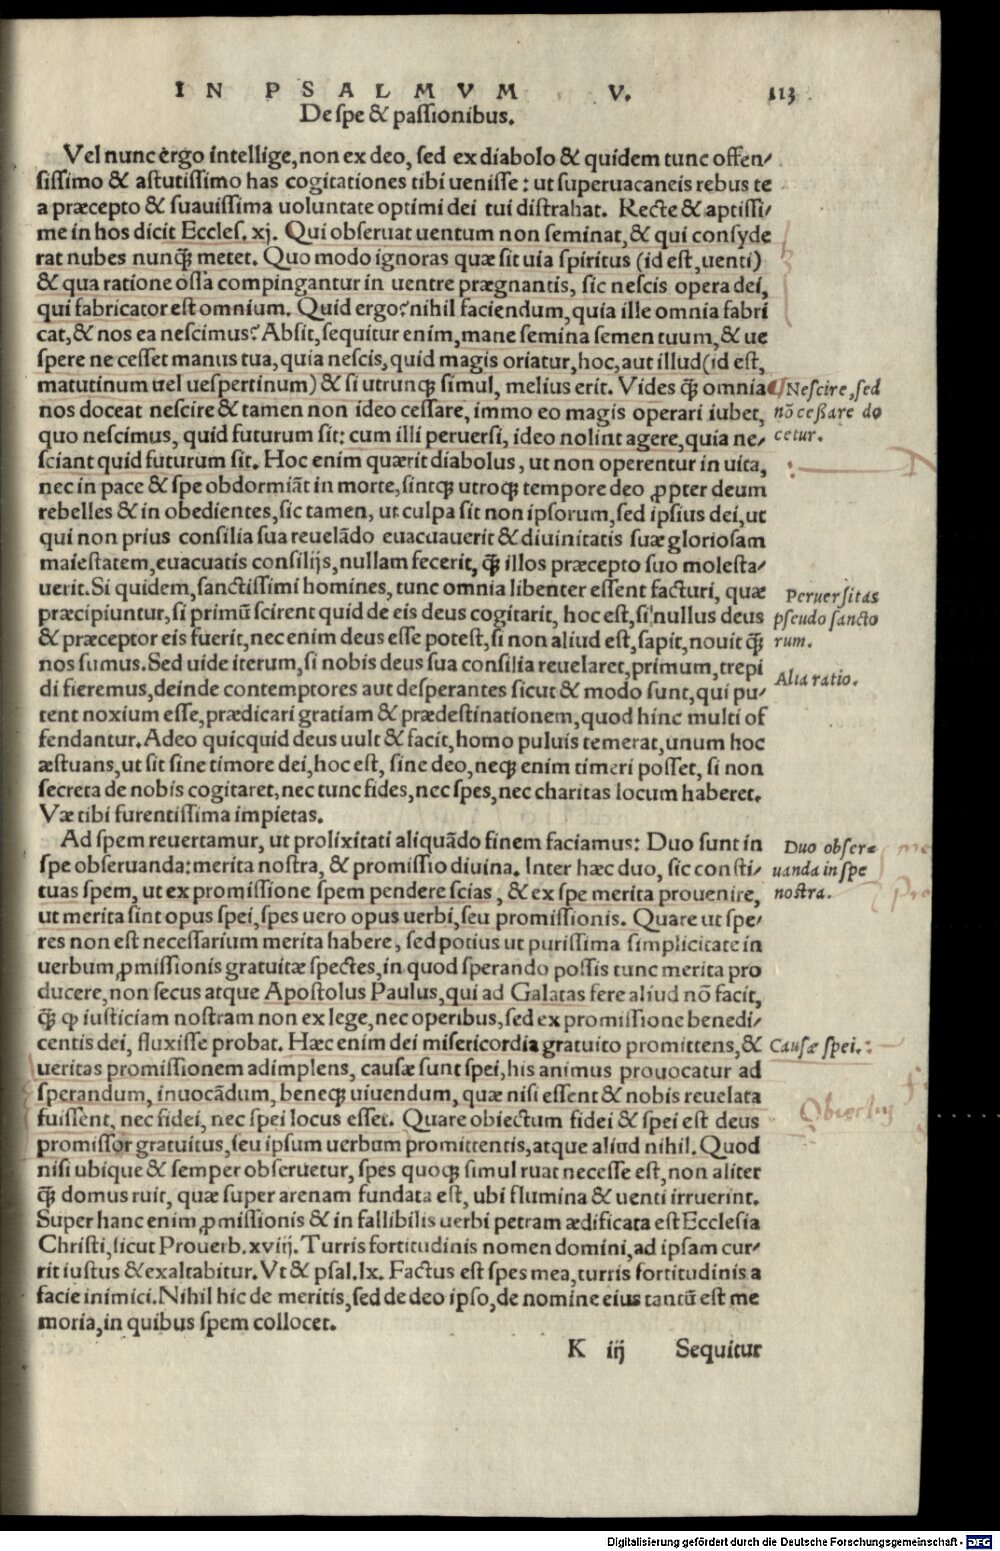 IN PSALMVM V. 113
De spe & passionibus.
Vel nunc ergo intellige, non ex deo, sed ex diabolo & quidem tunc offen/
sissimo & astutissimo has cogitationes tibi uenisse: ut superuacaneis rebus te
a præcepto & suauissima uoluntate optimi dei tui distrahat. Recte & aptissi/
me in hos dicit Eccles. xj. Qui obseruat uentum non seminat, & qui consyde
rat nubes nunq̃ metet. Quo modo ignoras quæ sit uia spiritus (id est, uenti)
& qua ratione ossa compingantur in uentre prægnantis, sic nescis opera dei,
qui fabricator est omnium. Quid ergo? nihil faciendum, quia ille omnia fabri
cat, & nos ea nescimus? Absit, sequitur enim, mane semina semen tuum, & ue
spere ne cesset manus tua, quia nescis, quid magis oriatur, hoc, aut illud (id est,
matutinum uel uespertinum) & si utrunqȝ simul, melius erit. Vides q̃ omnia
nos doceat nescire & tamen non ideo cessare, immo eo magis operari iubet,
quo nescimus, quid futurum sit: cum illi peruersi, ideo nolint agere, quia ne/
sciant quid futurum sit. Hoc enim quærit diabolus, ut non operentur in uita,
nec in pace & spe obdormiāt in morte, sintqȝ utroqȝ tempore deo ꝓpter deum
rebelles & in obedientes, sic tamen, ut culpa sit non ipsorum, sed ipsius dei, ut
qui non prius consilia sua reuelādo euacuauerit & diuinitatis suæ gloriosam
maiestatem, euacuatis consilijs, nullam fecerit, q̃ illos præcepto suo molesta/
uerit. Si quidem, sanctissimi homines, tunc omnia libenter essent facturi, quæ
præcipiuntur, si primū scirent quid de eis deus cogitarit, hoc est, si nullus deus
& præceptor eis fuerit, nec enim deus esse potest, si non aliud est, sapit, nouit q̃
nos sumus. Sed uide iterum, si nobis deus sua consilia reuelaret, primum, trepi
di fieremus, deinde contemptores aut desperantes sicut & modo sunt, qui pu/
tent noxium esse, prædicari gratiam & prædestinationem, quod hinc multi of
fendantur. Adeo quicquid deus uult & facit, homo puluis temerat, unum hoc
æstuans, ut sit sine timore dei, hoc est, sine deo, neqȝ enim timeri posset, si non
secreta de nobis cogitaret, nec tunc fides, nec spes, nec charitas locum haberet.
Væ tibi furentissima impietas.
Ad spem reuertamur, ut prolixitati aliquādo finem faciamus: Duo sunt in
spe obseruanda: merita nostra, & promissio diuina. Inter hæc duo, sic consti/
tuas spem, ut ex promissione spem pendere scias, & ex spe merita prouenire,
ut merita sint opus spei, spes uero opus uerbi, seu promissionis. Quare ut spe/
res non est necessarium merita habere, sed potius ut purissima simplicitate in
uerbum ꝓmissionis gratuitæ spectes, in quod sperando possis tunc merita pro
ducere, non secus atque Apostolus Paulus, qui ad Galatas fere aliud nō facit,
q̃ ꝙ iusticiam nostram non ex lege, nec operibus, sed ex promissione benedi/
centis dei, fluxisse probat. Hæc enim dei misericordia gratuito promittens, &
ueritas promissionem adimplens, causæ sunt spei, his animus prouocatur ad
sperandum, inuocādum, beneqȝ uiuendum, quæ nisi essent & nobis reuelata
fuissent, nec fidei, nec spei locus esset. Quare obiectum fidei & spei est deus
promissor gratuitus, seu ipsum uerbum promittentis, atque aliud nihil. Quod
nisi ubique & semper obseruetur, spes quoqȝ simul ruat necesse est, non aliter
q̃ domus ruit, quæ super arenam fundata est, ubi flumina & uenti irruerint.
Super hanc enim ꝓmissionis & in fallibilis uerbi petram ædificata est Ecclesia
Christi, sicut Prouerb. xviij. Turris fortitudinis nomen domini, ad ipsam cur/
rit iustus & exaltabitur. Vt & psal. lx. Factus est spes mea, turris fortitudinis a
facie inimici. Nihil hic de meritis, sed de deo ipso, de nomine eius tantū est me
moria, in quibus spem collocet.
K iij Sequitur
Nescire, sed
nō ceßare do
cetur.
Peruersitas
pseudo sancto
rum.
Alia ratio.
Duo obser
uanda in spe
nostra.
Causæ spei.
Obiectus
Digitalisierung gefördert durch die Deutsche Forschungsgemeinschaft - DFG